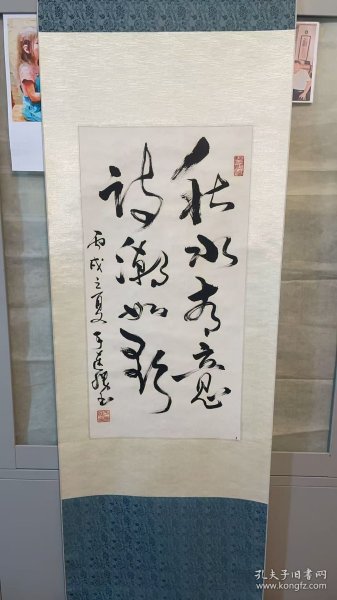 秋水有意
诗潮如歌
丙戌之夏 书
孔夫子旧书网
www.kongfz.com